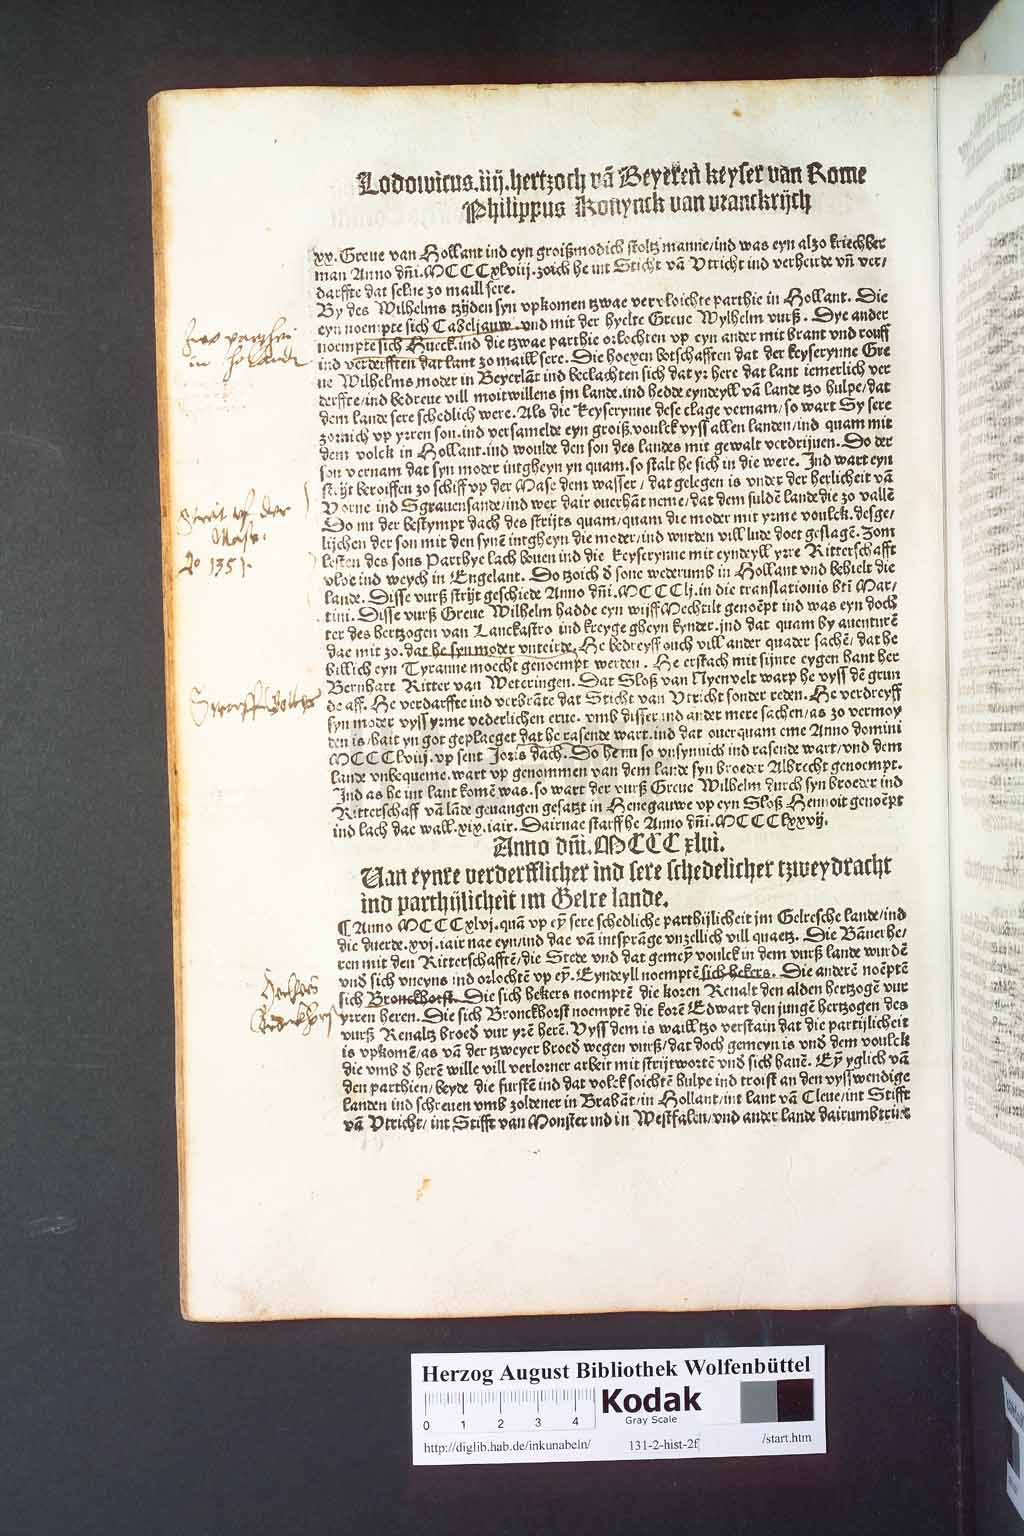 Lodowicus.iiij.hertzoch vā Beyerēn keyser van Rome
Philippus Konynck van vranckrijch
xx. Greue van Hollant ind eyn groißmodich stoltz manne/ind was eyn alzo kriechber
man Anno dñi.MCCCxlviij.zoich he int Sticht vā Vtricht ind verheirde vñ ver/
darffte dat selue zo maill sere.
By des Wilhelms tzijden syn vpkomen tzwae vervloichte parthie in Hollant. Die
eyn noempte sich Cabeljauw.vnd mit der hyelte Greue Wylhelm vurß. Dye ander
noempte sich Hueck.ind die tzwae parthie orlochten vp eyn ander mit brant vnd rouff
ind verderfften dat lant zo maill sere. Die hoexen botschafften dat der keyserynne Gre
ue Wilhelms moder in Beyerlāt ind beclachten sich dat yr here dat lant iemerlich ver
derffte/ind bedreue vill moitwillens jm lande.ind hedde eyndeyll vā lande tzo hulpe/dat
dem lande sere schedlich were. Als die Keyserynne dese clage vernam/so wart Sy sere
zornich vp yrren son.ind versamelde eyn groiß.voulck vyss allen landen/ind quam mit
dem volck in Hollant.ind woulde den son des landes mit gewalt verdrijuen. Do der
son vernam dat syn moder intgheyn yn quam.so stalt he sich in die were. Ind wart eyn
strijt beroiffen zo schiff vp der Mase dem wasser/dat gelegen is vnder der herlicheit vā
Vorne ind Sgrauensande/ind wer dair ouerhāt neme/dat dem suldē lande die zo vallē
Do nu der bestympt dach des strijts quam/quam die moder mit yrme voulck.desge/
lijchen der son mit den synē intgheyn die moder/ind wurden vill lude doet geslagē. Zom
lesten des sons Parthye lach bouen ind die keyserynne mit eyndeyll yrre Ritterschafft
vloe ind weych in Engelant. Do tzoich ð sone wederumb in Hollant vnd behielt die
lande. Disse vurß strijt geschiede Anno dñi.MCCClj.in die translationis bti Mar/
tini. Disse vurß Greue Wilhelm hadde eyn wijff Mechtilt genoēpt ind was eyn doch
ter des hertzogen van Lanckastro ind kreyge gheyn kynder.ind dat quam by auenturē
dae mit zo.dat he syn moder vnteirde. He bedreyff ouch vill ander quader sachē/dat he
billich eyn Tyranne moecht genoempt werden. He erstach mit sijnre eygen hant her
Bernhart Ritter van Weteringen. Dat Sloß van Nyenvelt warp he vyss dē grun
de aff. He verdarffte ind verbrāte dat Sticht van Vtricht sonder reden. He verdreyff
syn moder vyss yrme vederlichen erue. vmb disser ind ander mere sachen/as zo vermoy
den is/hait yn got geplaeget dat he rasende wart.ind dat ouerquam eme Anno domini
MCCClviij.vp sent Joris dach. Do he nu so vnsynnich ind rasende wart/vnd dem
lande vnbequeme.wart vp genommen van dem lande syn broeder Albrecht genoempt.
Ind as he int lant komē was.so wart der vurß Greue Wilhelm durch syn broeder ind
Ritterschaff vā lāde geuangen gesatzt in Henegauwe vp eyn Sloß Hennoit genoēpt
ind lach dae wall.xix.iair. Dairnae starff he Anno dñi.MCCClxxvij.
Anno dñi.MCCCxlvi.
Uan eynre verderfflicher ind sere schedelicher tzweydracht
ind parthijlicheit im Gelre lande.
¶ Anno MCCCxlvj.quā vp eȳ sere schedliche parthijlicheit jm Gelresche lande/ind
die duerde.xvj.iair nae eyn/ind dae vā intsprāge vnzellich vill quaetz. Die Bānerhe/
ren mit den Ritterschafftē/die Stede vnd dat gemeȳ voulck in dem vurß lande wurdē
vnd sich vneyns ind orlochtē vp eȳ. Eyndeyll noemptē sich hekers. Die anderē noēptē
sich Bronckhorst. Die sich hekers noemptē die koren Renalt den alden hertzogē vur
yrren heren. Die sich Bronckhorst noemptē die korē Edwart den jungē hertzogen des
vurß Renaltz broeð vur yrē herē. Vyss dem is waill tzo verstain dat die partijlicheit
is vpkomē/as vā der tzweyer broeð wegen vurß/dat doch gemeyn is vnd dem voulck
die vmb ð herē wille vill verlorner arbeit mit strijtwortē vnd sich hauē. Eȳ yglich vā
den parthien/beyde die furstē ind dat volck soichtē hulpe ind troist an den vysswendige
landen ind schreuen vmb zoldener in Brabāt/in Hollant/int lant vā Cleue/int Stifft
vā Vtricht/int Stifft van Monster ind in Westfalen/vnd ander lande dairumbtrint
Zwo parthei
in Holandt
Streit vf der
Mase.
Aº 1351.
Straff Gottes
Heckers
Bronckhorst
Herzog August Bibliothek Wolfenbüttel
0 1 2 3 4
Kodak
Gray Scale
http://diglib.hab.de/inkunabeln/ 131-2-hist-2f /start.htm